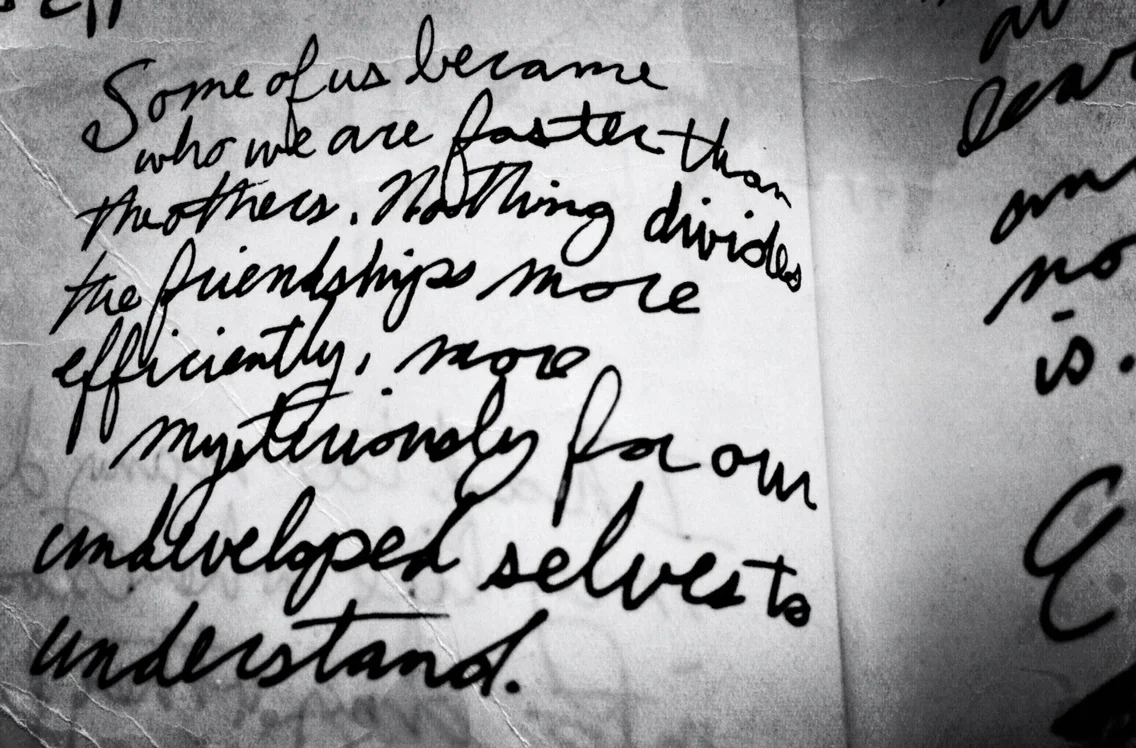 Some of us became
who we are faster than
the others. Nothing divides
the friendships more
efficiently, more
mysteriously for our
undeveloped selves to
understand.
no
is.